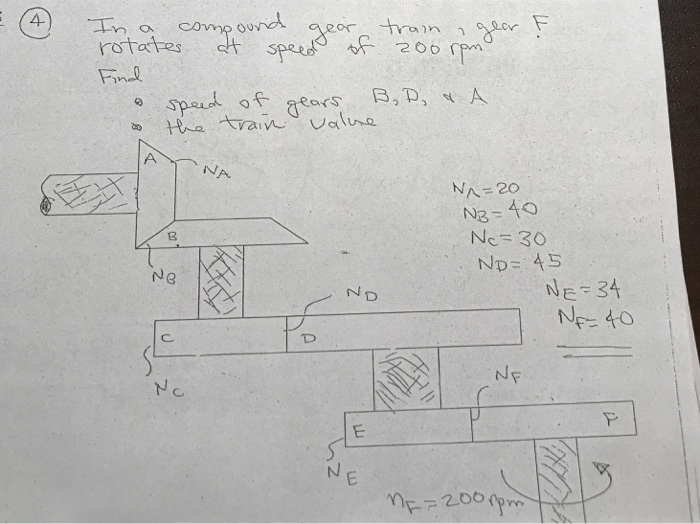 4
In a compound gear train, gear F
rotates at speed of 200 rpm
Find
speed of gears B, D, & A
the train value
A
NA
B
NB
NA = 20
NB = 40
NC = 30
ND = 45
NE = 34
NF = 40
ND
C
D
NC
NF
E
F
NE
nF = 200 rpm